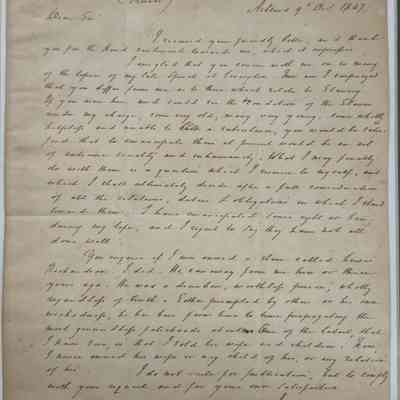 (Private)
Ashland 9th Oct 1847.
Dear Sir
I received your friendly letter, and thank
you for the kind sentiments towards me, which it expresses.
I am glad that you concur with me on so many
of the topics of my late Speech at Lexington. Nor am I surprized
that you differ from me as to those which relate to Slavery.
If you were here and could see the condition of the Slaves
under my charge, some very old, many very young, some wholly
helpless and unable to a subsistence, you would be satis-
fied that to emancipate them at present would be an act
of extreme cruelty and inhumanity. What I may finally
do with them is a question which I reserve to myself, and
which I shall ultimately decide after a full consideration
of all the relations, duties & obligations in which I stand
toward them. I have emancipated some eight or ten,
during my life, and I regret to say they have not all
done well.
You enquire if I ever owned a slave called Lewis
Richardson. I did. He ran away from me two or three
years ago. He was a drunken, worthless fellow, wholly
regardless of truth. Either prompted by others or his own
wickedness, he has been from time to time propagating the
most groundless falsehoods about me. One of the latest, that
I have seen, is that I sold his wife and children. Now,
I never owned his wife or any child of his, or any relation
of his. I do not write for publication, but to comply
with your request and for your own satisfaction